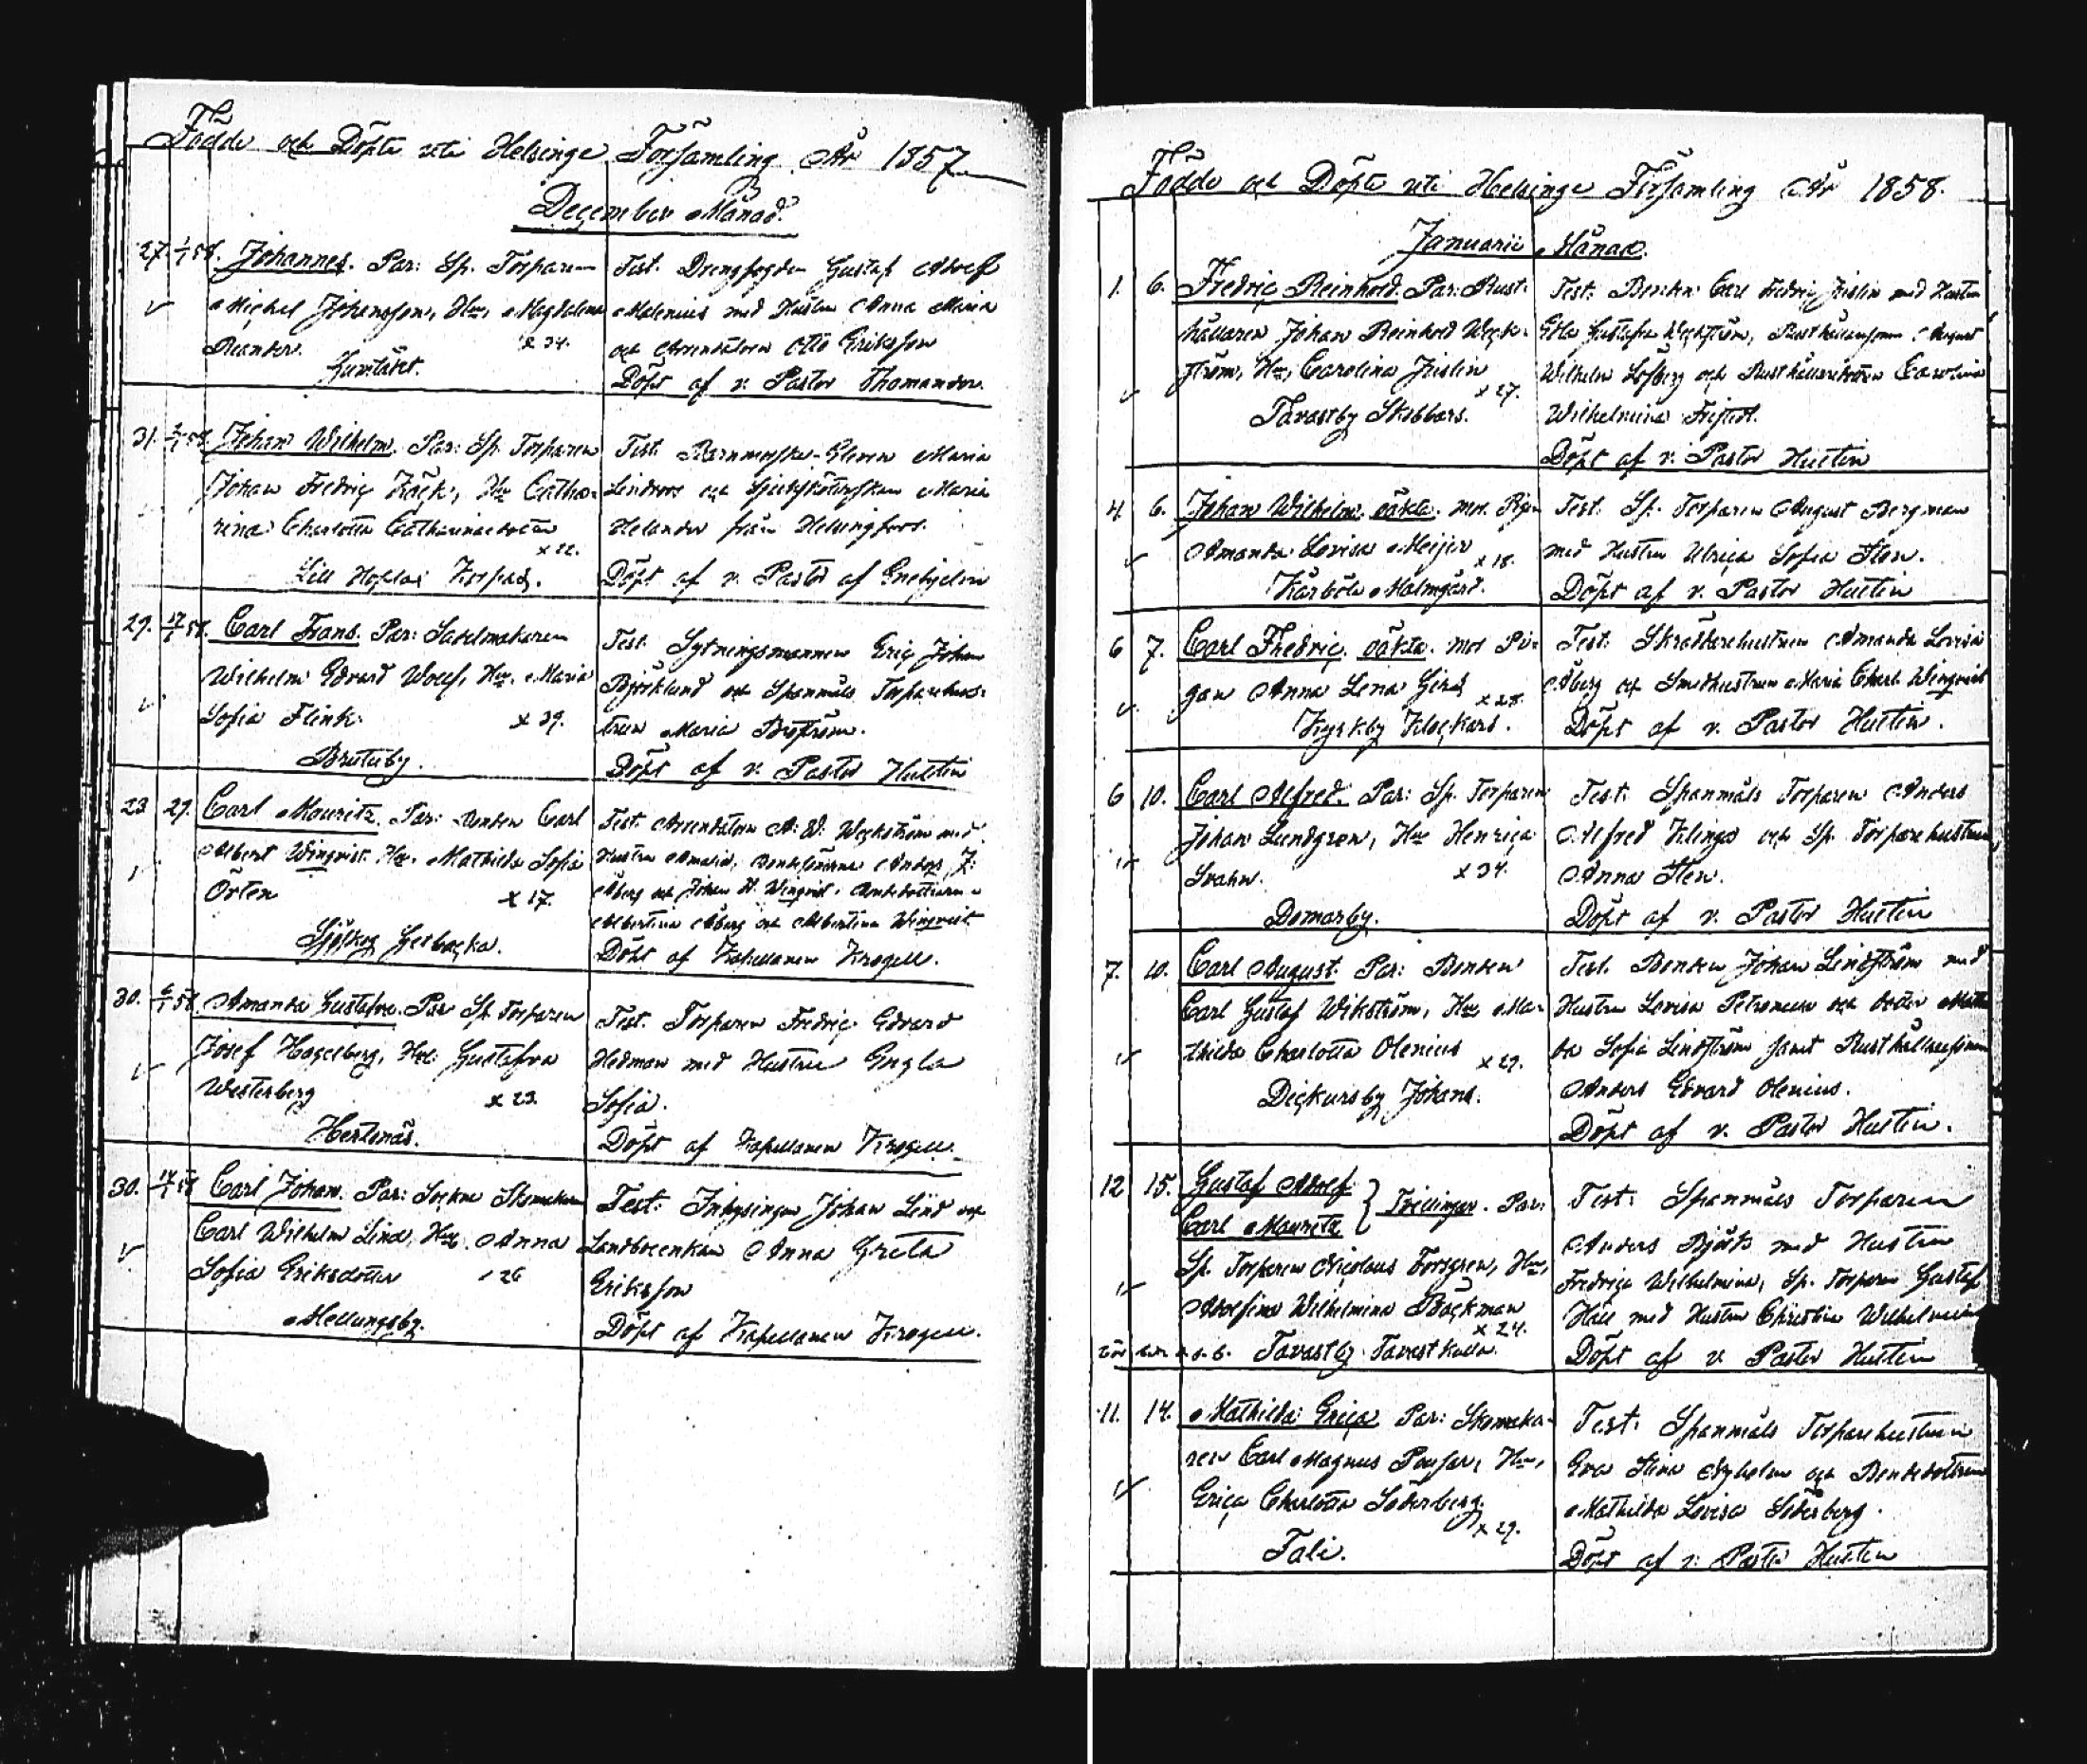 Födde och Döpte uti Helsinge Församling År 1857
December Månad.
27. 1/1 58. Johannes. Par: Sp. Torparen
Michel Johansson, Hu, Magdalena
Reander. x 34.
Gumtäkt.
Test. Drengfogden Gustaf Adolf
Malenius med Hustru Anna Maria
och Arrendatorn Otto Eriksson
Döpt af v. Pastor Thomander.
31. 58. Johan Wilhelm. Par: Sp. Torparen
Johan Fredric Köck, Hu Catha-
rina Charlotta Catharinaedotter
x 22.
Lill Hoplax Korpas.
Test. Barnmorske-Eleven Maria
Lindroos och Sjuksköterskan Maria
Helander från Helsingfors.
Döpt af v. Pastor af Enehjelm
29. 17/1 58. Carl Frans. Par: Sadelmakaren
Wilhelm Edvard Woulf, Hu. Maria
Sofia Flink. x 39.
Brutuby.
Test. Sytningsmannen Eric Johan
Björklund och Spanmåls Torparehus-
trun Maria Boström.
Döpt af v. Pastor Hultin
23 29. Carl Mauritz. Par: Bonden Carl
Albert Winqvist. Hu. Mathilda Sofia
Örten x 17.
Sjöskog Gesbacka.
Test. Arrendatorn A. W. Weckström med
Hustru Amalia, Bondesönerne Anders J.
Åberg och Johan H. Winqvist. Bondedöttrarne
Albertina Åberg och Albertina Winqvist
Döpt af Kapellanen Krogell.
30. 6/1 58. Amanda Gustafva. Par Sp. Torparen
Josef Hagelberg, Hu: Gustafva
Westerberg x 23.
Hertonäs.
Test. Torparen Fredric Edvard
Hedman med Hustru Engla
Sofia.
Döpt af Kapellanen Krogell.
30. 14/1 58 Carl Johan. Par: Sockne Skomakaren
Carl Wilhelm Lind, Hu. Anna
Sofia Eriksdotter 26
Mellungsby.
Test: Inhysingen Johan Lind och
Landboenkan Anna Greta
Eriksson
Döpt af Kapellanen Krogell.
Födde och Döpte uti Helsinge Församling År 1858.
Januarii Månad.
1. 6. Fredric Reinhold. Par: Rust-
hållaren Johan Reinhold Weck-
ström, Hu, Carolina Frislin
x 27.
Tavastby Skibbars.
Test: Bonden Carl Fredric Frislin med Hustru
Edla Gustafva Weckström, Rusthållaresonen August
Wilhelm Löfberg och Rusthållaredottren Carolina
Wilhelmina
Döpt af v. Pastor Hultin
4. 6. Johan Wilhelm. oäkta. Mor. Pigan
Amanda Lovisa Meijer x 18.
Kårböle Malmgård.
Test. Sp. Torparen August Bergman
med Hustru Ulrica Sofia Sten.
Döpt af v. Pastor Hultin
6 7. Carl Fredric. oäkta. Mor Pi-
gan Anna Lena Girs x 28.
Kyrkby Klockars.
Test: Skräddarehustrun Amanda Lovisa
Åberg och Smedhustrun Maria Charl. Winqvist
Döpt af v. Pastor Hultin.
6 10. Carl Alfred. Par: Sp. Torparen
Johan Lundgren, Hu Henrica
Svahn. x 34.
Domarby.
Test: Spanmåls Torparen Anders
Alfred Klinga och Sp. Torparehustrun
Anna Sten.
Döpt af v. Pastor Hultin
7. 10. Carl August. Par: Bonden
Carl Gustaf Wikström, Hu Ma-
thilda Charlotta Olenius x 29.
Dickursby Johans.
Test. Bonden Johan Lindström med
Hustru Lovisa Petronella och dotter Mathil-
da Sofia Lindström samt Rusthållaresonen
Anders Edvard Olenius.
Döpt af v. Pastor Hultin.
12 15. Gustaf Adolf
Carl Mauritz } Tvillingar. Par:
Sp. Torparen Nicolaus Forsgren, Hu,
Adolfina Wilhelmina Böckman
x 24.
Tavastby Tavastkulla.
Test: Spanmåls Torparen
Anders Björk med Hustru
Fredrica Wilhelmina, Sp. Torparen Gustaf
Häll med Hustru Christina Wilhelmina
Döpt af v. Pastor Hultin
11. 14. Mathilda Erica Par: Skomaka-
ren Carl Magnus Hu,
Erica Charlotta Söderberg.
x 29.
Tali.
Test: Spanmåls Torparehustrun
Eva Stina Nyholm och Bondedottren
Mathilda Lovisa Söderberg.
Döpt af v. Pastor Hultin